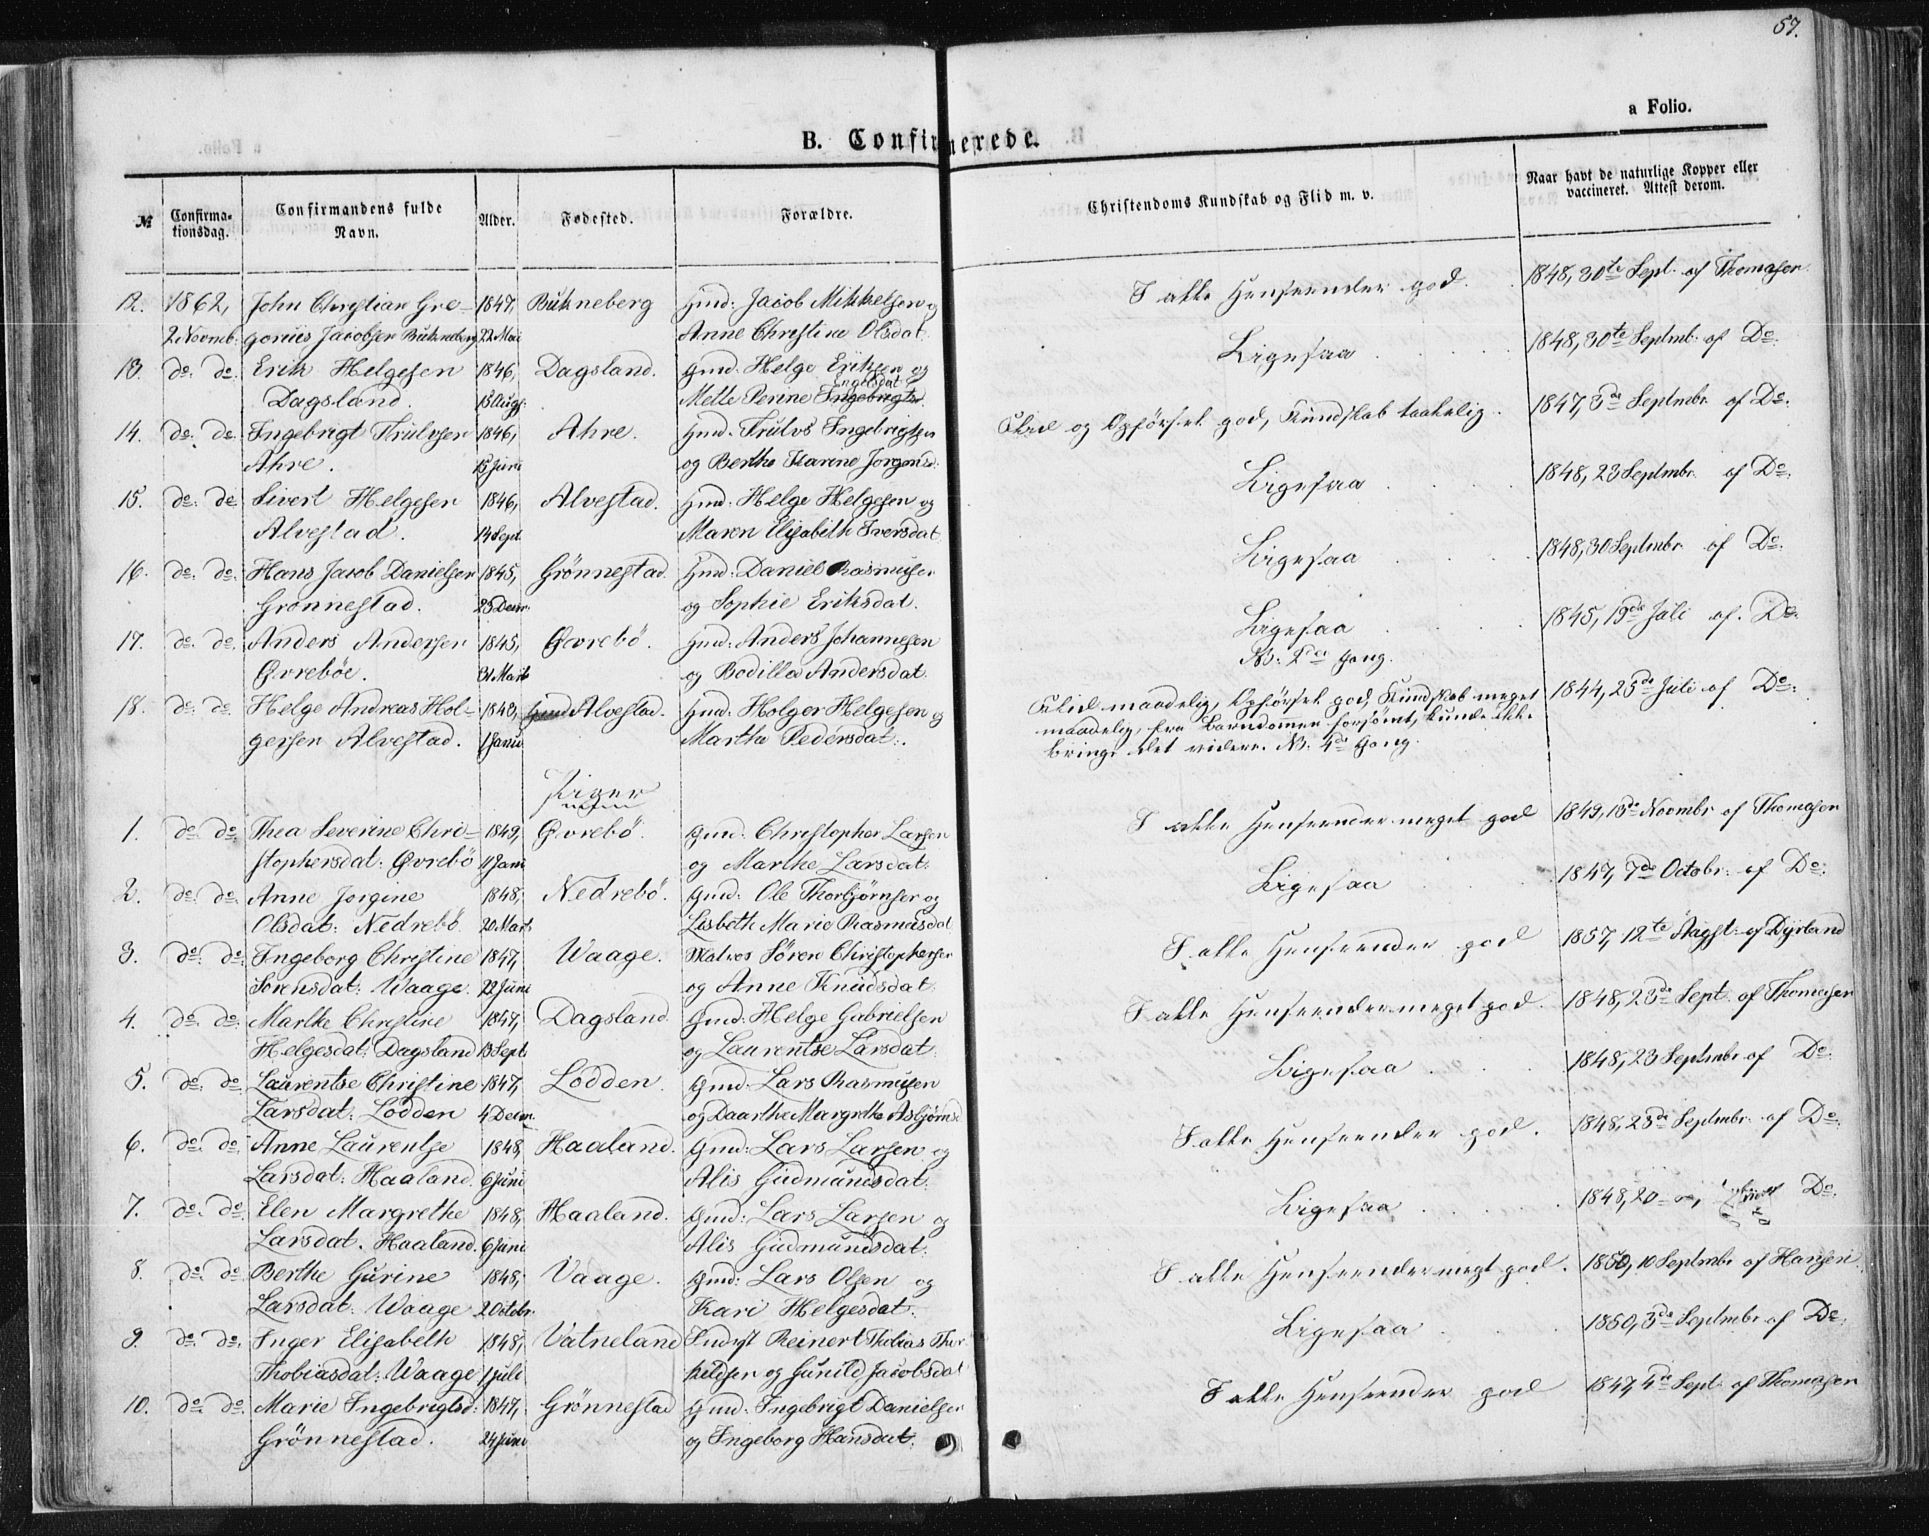 57.
a Folio.
B. Confirmerede.
№ Confirma-tionsdag. Confirmandens fulde Navn. Alder. Fødested. Forældre. Christendoms Kundskab og Flid m. v. Naar havt de naturlige Kopper eller vaccineret. Attest derom.
12. 1862, John Christian Gre- 1847, Bukneberg Gmd: Jacob Mikkelsen og I alle Henseender god. 1848, 30te Sept. af Thomasen
2 Novmb: goriús Jacobsen Bukneberg 22 Mai Anne Christine Olsdat.
13. do. do. Erik Helgesen 1846, Dagsland. Gmd: Helge Eriksen og Ligesaa 1848, 30te Septmb. af Do.
Dagsland. 13 Aúg: Mette Perine Engelsdat
14. do. do. Ingebrigt Thúlvsen 1846, Ahre. Gmd: Trúlvs Ingebrigtsen Flid og Opførsel god, Kundskab taalelig. 1847, 3de Septmbr. af Do.
Ahre. 15 Júni og Berthe Karine Jorgensd.
15. do. do. Sivert Helgesen 1846, Alvestad. Gmd: Helge Helgesen og Ligesaa 1848, 23 Septmbr. af Do.
Alvestad. 14 Sept. Maren Elisabeth Iversdat.
16. do. do. Hans Jacob Danielsen 1845, Grönnestad. Gmd: Daniel Rasmusen Ligesaa 1848, 30 Septmbr. af Do.
Grönnestad. 25 Decbr. og Sophie Eriksdat.
17. do. do. Anders Andersen 1845, Øvrebö. Gmd: Anders Johannesen Ligesaa 1845, 19de Júli af. Do.
Øvreböe. 31 Marts og Bodilla Andersdat. NB: 2den Gang.
18. do. do. Helge Andreas Hol- 1843, Alvestad. Gmd: Holger Helgesen og Flid maadelig, Opførsel god, Kundskab meget 1844, 25de Júli af Do.
gersen Alvestad. 1 Janú. Marthe Pedersdat. maadelig, fra Barndommen forsømt, kunde ikke
bringe det videre. NB: 4de Gang.
Piger
1. do. do. Thea Severine Chri- 1849, Øvrebö. Gmd: Christopher Larsen I alle Henseender meget god 1849, 13de Novmbr af Thomasen
stophersdat: Øvrebö 11 Janú og Marthe Larsdat:
2. do. do. Anne Jorgine 1848, Nedrebö. Gmd: Ole Thorbjörnsen og Ligesaa 1847, 7de Octobr. af Do.
Olsdat: Nedrebö 20 Marts Lisbeth Marie Rasmúsdat
3. do. do. Ingeborg Christine 1847, Waage. Matros Sören Christophersen I alle Henseender god 1857, 12te Aúgst. af Dyrland
Sörensdat: Waage. 22 Júni og Anne Knúdsdat.
4. do. do. Marthe Christine 1847, Dagsland Gmd: Helge Gabrielsen I alle Henseender meget god. 1848, 23de Sept. af Thomasen
Helgesdat: Dagsland 13 Sept. og Laurentse Larsdat.
5. do. do. Laurentse Christine 1847, Lodden. Gmd: Lars Rasmusen Ligesaa 1848, 23 Septmbr af Do.
Larsdat: Lodden 4 Decbr. og Daarthe Margrethe Asbjörnsd
6. do. do. Anne Laurentse 1848, Haaland. Gmd: Lars Larsen og I alle Henseender god. 1848, 23de Septmbr. af Do.
Larsdat: Haaland. 6 Júni Alis Gúdmúndsdat.
7. do. do. Elen Margrethe 1848, Haaland. Gmd: Lars Larsen og Ligesaa 1848, 20 af Do.
Larsdat. Haaland. 6 Júni Alis Gúdmúndsdat.
8. do. do. Berthe Gúrine 1848, Vaage. Gmd: Lars Olsen og I alle Henseender meget god. 1850, 10 Septmbr af Hansen.
Larsdat: Waage 2 Octobr. Kari Helgesdat.
9. do. do. Inger Elisabeth 1848, Vatneland Indyst Reinert Thobias Thor- Ligesaa 1850, 3de Septmbr af Do.
Thobiasdat: Waage 1 Júli keldsen og Gúnild Jacobsdat
10. do. do. Marie Ingebrigtsd: 1847, Grönnestad Gmd: Ingebrigt Danielsen I alle Henseender god 1847, 4de Sept. af Thomasen
Grönnestad. 24 Júni og Ingeborg Hansdat.